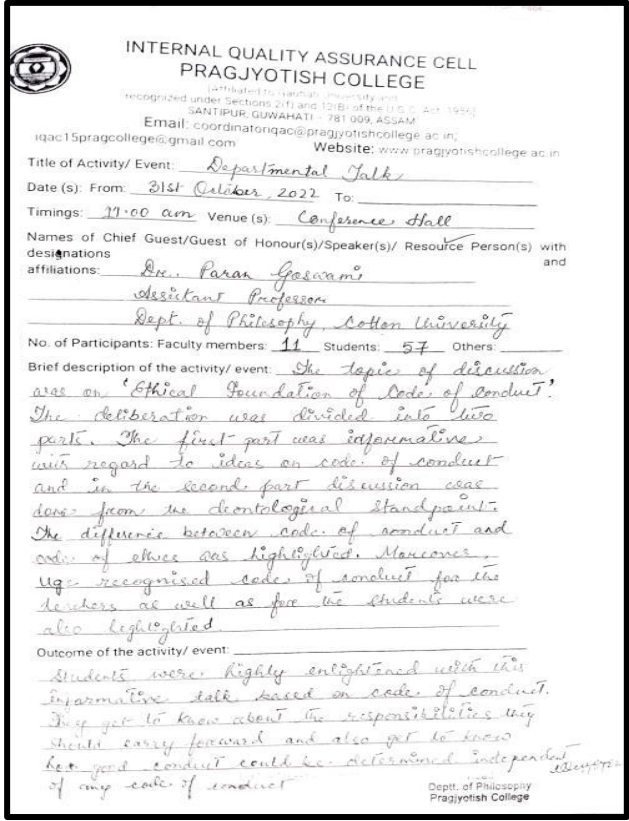 INTERNAL QUALITY ASSURANCE CELL
PRAGJYOTISH COLLEGE
[Affiliated to Gauhati University and
recognized under Sections 2(f) and 12(B) of the U.G.C. Act, 1956]
SANTIPUR, GUWAHATI - 781 009, ASSAM
Email: coordinatoriqac@pragjyotishcollege ac in;
iqac15pragcollege@gmail.com
Website: www pragjyotishcollege ac in
Title of Activity/ Event: Departmental Talk
Date (s): From: 31st October, 2022 To:
Timings: 11.00 am Venue (s): Conference Hall
Names of Chief Guest/Guest of Honour(s)/Speaker(s)/ Resource Person(s) with
designations and
affiliations: Dr. Paran Goswami
Assistant Professor
Dept. of Philosophy, Cotton University
No. of Participants: Faculty members: 11 Students: 57 Others:
Brief description of the activity/ event: The topic of discussion
was on 'Ethical Foundation of Code of Conduct'.
The deliberation was divided into two
parts. The first part was informative
with regard to ideas on code of conduct
and in the second part discussion was
done from the deontological standpoint.
The difference between code of conduct and
code of ethics was highlighted. Moreover,
UGC recognised code of conduct for the
teachers as well as for the students were
also highlighted
Outcome of the activity/ event:
Students were highly enlightened with this
informative talk based on code of conduct.
They get to know about the responsibilities they
should carry forward and also get to know
how good conduct could be determined independent
of any code of conduct
Deptt. of Philosophy
Pragjyotish College